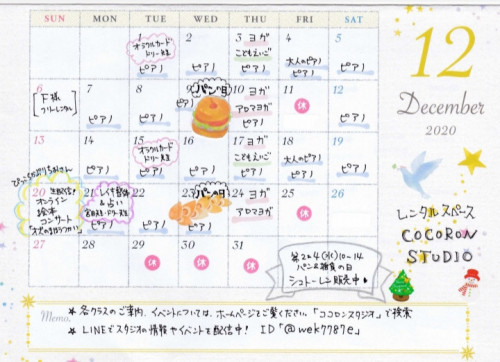 SUN MON TUE WED THU FRI SAT
12
December
2020
1 2 3 4 5
オラクルカード
ドリー様
ピアノ
ピアノ
ヨガ
こどもえいご
ピアノ
大人のピアノ
ピアノ
ピアノ
6 7 8 9 10 11 12
F様
フリーレンタル
ピアノ
ピアノ
パンの日
ピアノ
ヨガ
アロマヨガ
ピアノ
休
ピアノ
13 14 15 16 17 18 19
ピアノ
オラクルカード
ドリー様
ピアノ
ピアノ
ヨガ
こどもえいご
ピアノ
大人のピアノ
ピアノ
ピアノ
20 21 22 23 24 25 26
生配信!
オンライン
絵本
コンサート
レイキ整体
&占い
ピアノ
ピアノ
パンの日
ピアノ
ヨガ
アロマヨガ
27 28 29 30 31
休
休
休
10-14
パンと雑貨の日
シュトーレン販売中
レンタルスペース
COCORON
STUDIO
Memo
★ 各クラスのご案内、イベントについては、ホームページをご覧ください。「ココロンスタジオ」で検索
★ LINEでスタジオの情報やイベントを配信中! ID「@wek7787e」